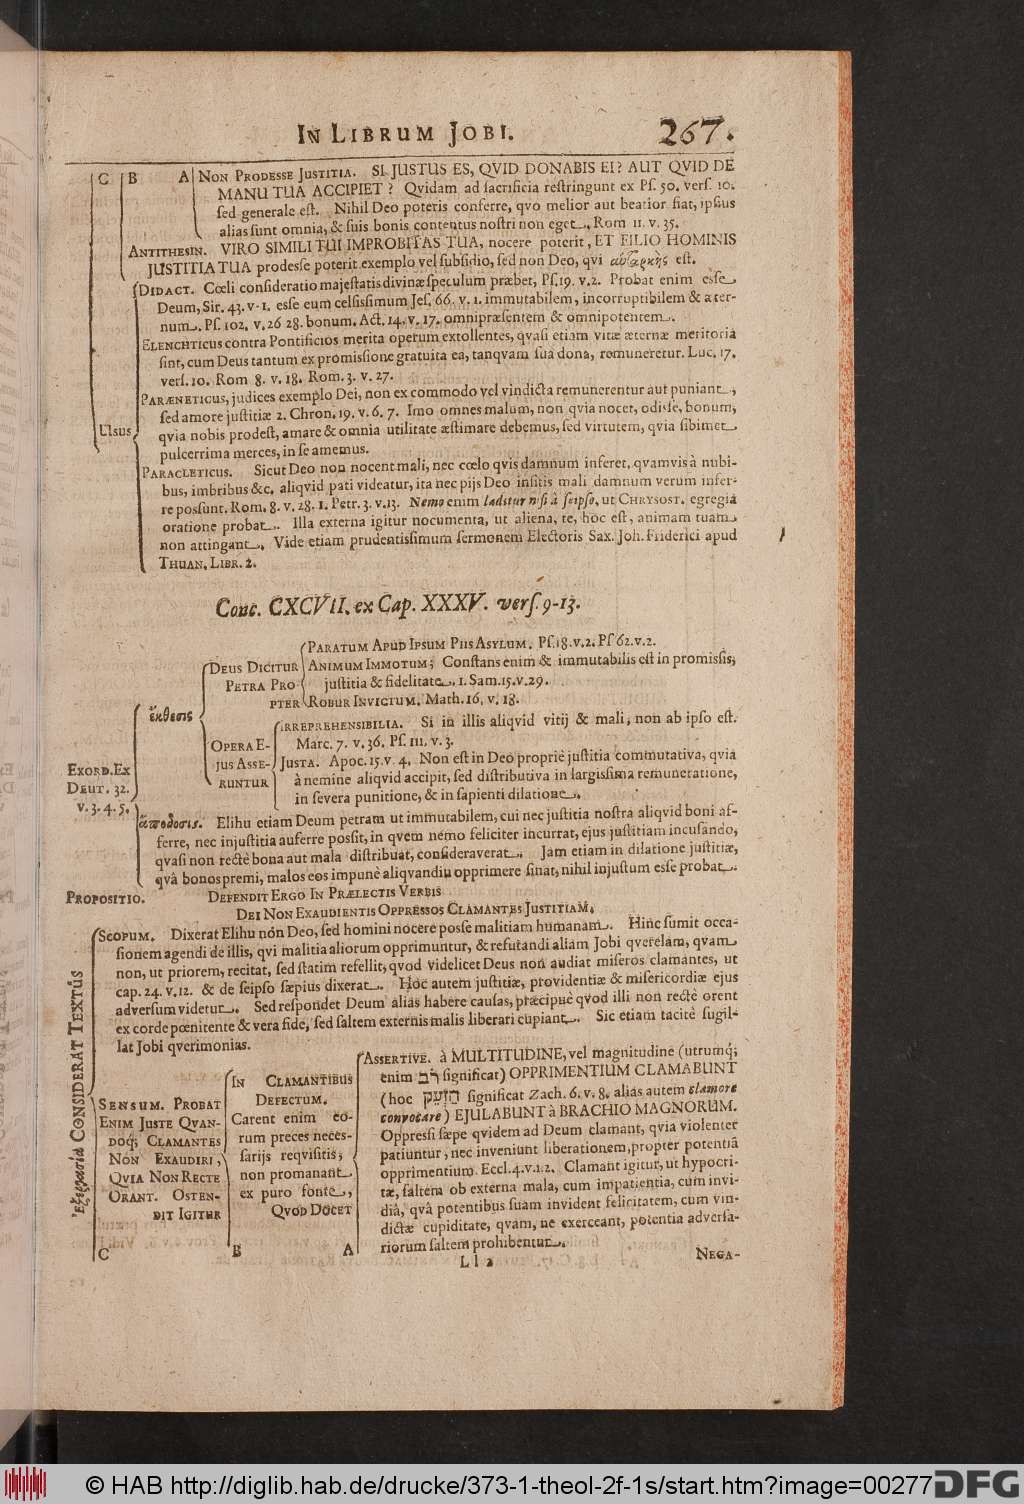 IN LIBRUM JOBI. 267.
C B A NON PRODESSE JUSTITIA. SI JUSTUS ES, QVID DONABIS EI? AUT QVID DE
MANU TUA ACCIPIET? Qvidam ad sacrificia restringunt ex Ps. 50. vers. 10.
sed generale est. Nihil Deo poteris conferre, qvo melior aut beatior fiat, ipsius
alias sunt omnia, & suis bonis contentus nostri non eget, Rom 11. v. 35.
ANTITHESIN. VIRO SIMILI TUI IMPROBITAS TUA, nocere poterit, ET FILIO HOMINIS
JUSTITIA TUA prodesse poterit exemplo vel subsidio, sed non Deo, qvi αυταρκης est.
Usus
DIDACT. Cœli consideratio majestatis divinæ speculum præbet, Ps. 19. v. 2. Probat enim esse
Deum, Sir. 43. v. 1. esse eum celsissimum Jes. 66. v. 1. immutabilem, incorruptibilem & æter-
num. Ps. 102. v. 26 28. bonum. Act. 14. v. 17. omnipræsentem & omnipotentem.
ELENCHTICUS contra Pontificios merita operum extollentes, qvasi etiam vitæ æternæ meritoria
sint, cum Deus tantum ex promissione gratuita ea, tanqvam sua dona, remuneretur. Luc. 17.
vers. 10. Rom 8. v. 18. Rom. 3. v. 27.
PARÆNETICUS, judices exemplo Dei, non ex commodo vel vindicta remunerentur aut puniant,
sed amore justitiæ 2. Chron. 19. v. 6. 7. Imo omnes malum, non qvia nocet, odisse, bonum,
qvia nobis prodest, amare & omnia utilitate æstimare debemus, sed virtutem, qvia sibimet
pulcerrima merces, in se amemus.
PARACLETICUS. Sicut Deo non nocent mali, nec cœlo qvis damnum inferet, qvamvis à nubi-
bus, imbribus &c. aliqvid pati videatur, ita nec pijs Deo insitis mali damnum verum infer-
re possunt. Rom. 8. v. 28. 1. Petr. 3. v. 13. Nemo enim læditur nisi à seipso, ut CHRYSOST. egregiâ
oratione probat. Illa externa igitur nocumenta, ut aliena, te, hoc est, animam tuam
non attingant. Vide etiam prudentissimum sermonem Electoris Sax. Joh. Friderici apud
THUAN. LIBR. 2.
Conc. CXCVII. ex Cap. XXXV. vers. 9-13.
EXORD. EX
DEUT. 32.
v. 3. 4. 5.
ἔκθεσις
DEUS DICITUR
PETRA PRO
PTER
PARATUM APUD IPSUM PIIS ASYLUM. Ps. 18. v. 2. Ps 62. v. 2.
ANIMUM IMMOTUM; Constans enim & immutabilis est in promissis,
justitia & fidelitate. 1. Sam. 15. v. 29.
ROBUR INVICTUM. Math. 16. v. 18.
OPERA E-
JUS ASSE-
RUNTUR
IRREPREHENSIBILIA. Si in illis aliqvid vitij & mali, non ab ipso est.
Marc. 7. v. 36. Ps. 111. v. 3.
JUSTA. Apoc. 15. v. 4. Non est in Deo propriè justitia commutativa, qvia
à nemine aliqvid accipit, sed distributiva in largissima remuneratione,
in severa punitione, & in sapienti dilatione.
ἀπόδοσις. Elihu etiam Deum petram ut immutabilem, cui nec justitia nostra aliqvid boni af-
ferre, nec injustitia auferre possit, in qvem nemo feliciter incurrat, ejus justitiam incusando,
qvasi non rectè bona aut mala distribuat, consideraverat. Jam etiam in dilatione justitiæ,
qvâ bonos premi, malos eos impunè aliqvandiu opprimere sinat, nihil injustum esse probat.
PROPOSITIO. DEFENDIT ERGO IN PRÆLECTIS VERBIS
DEI NON EXAUDIENTIS OPPRESSOS CLAMANTES JUSTITIAM.
Ἐξεργασία CONSIDERAT TEXTÛS
SCOPUM. Dixerat Elihu non Deo, sed homini nocere posse malitiam humanam. Hinc sumit occa-
sionem agendi de illis, qvi malitia aliorum opprimuntur, & refutandi aliam Jobi qverelam, qvam
non, ut priorem, recitat, sed statim refellit, qvod videlicet Deus non audiat miseros clamantes, ut
cap. 24. v. 12. & de seipso sæpius dixerat. Hoc autem justitiæ, providentiæ & misericordiæ ejus
adversum videtur. Sed respondet Deum alias habere causas, præcipuè qvod illi non rectè orent
ex corde pœnitente & vera fide, sed saltem externis malis liberari cupiant. Sic etiam tacitè sugil-
lat Jobi qverimonias.
SENSUM. PROBAT
ENIM JUSTE QVAN-
DOQ; CLAMANTES
NON EXAUDIRI,
QVIA NON RECTE
ORANT. OSTEN-
DIT IGITUR
IN CLAMANTIBUS
DEFECTUM.
Carent enim eo-
rum preces neces-
sarijs reqvisitis;
non promanant
ex puro fonte,
QVOD DOCET
ASSERTIVE. à MULTITUDINE, vel magnitudine (utrumq;
enim רב significat) OPPRIMENTIUM CLAMABUNT
(hoc הזעק significat Zach. 6. v. 8. alias autem clamore
convocare) EJULABUNT à BRACHIO MAGNORUM.
Oppressi sæpe qvidem ad Deum clamant, qvia violenter
patiuntur, nec inveniunt liberationem, propter potentiâ
opprimentium. Eccl. 4. v. 1. 2. Clamant igitur, ut hypocri-
tæ, saltem ob externa mala, cum impatientia, cum invi-
diâ, qvâ potentibus suam invident felicitatem, cum vin-
dictæ cupiditate, qvam, ne exerceant, potentia adversa-
riorum saltem prohibentur.
C B A
L l 2
NEGA-
© HAB http://diglib.hab.de/drucke/373-1-theol-2f-1s/start.htm?image=00277
DFG